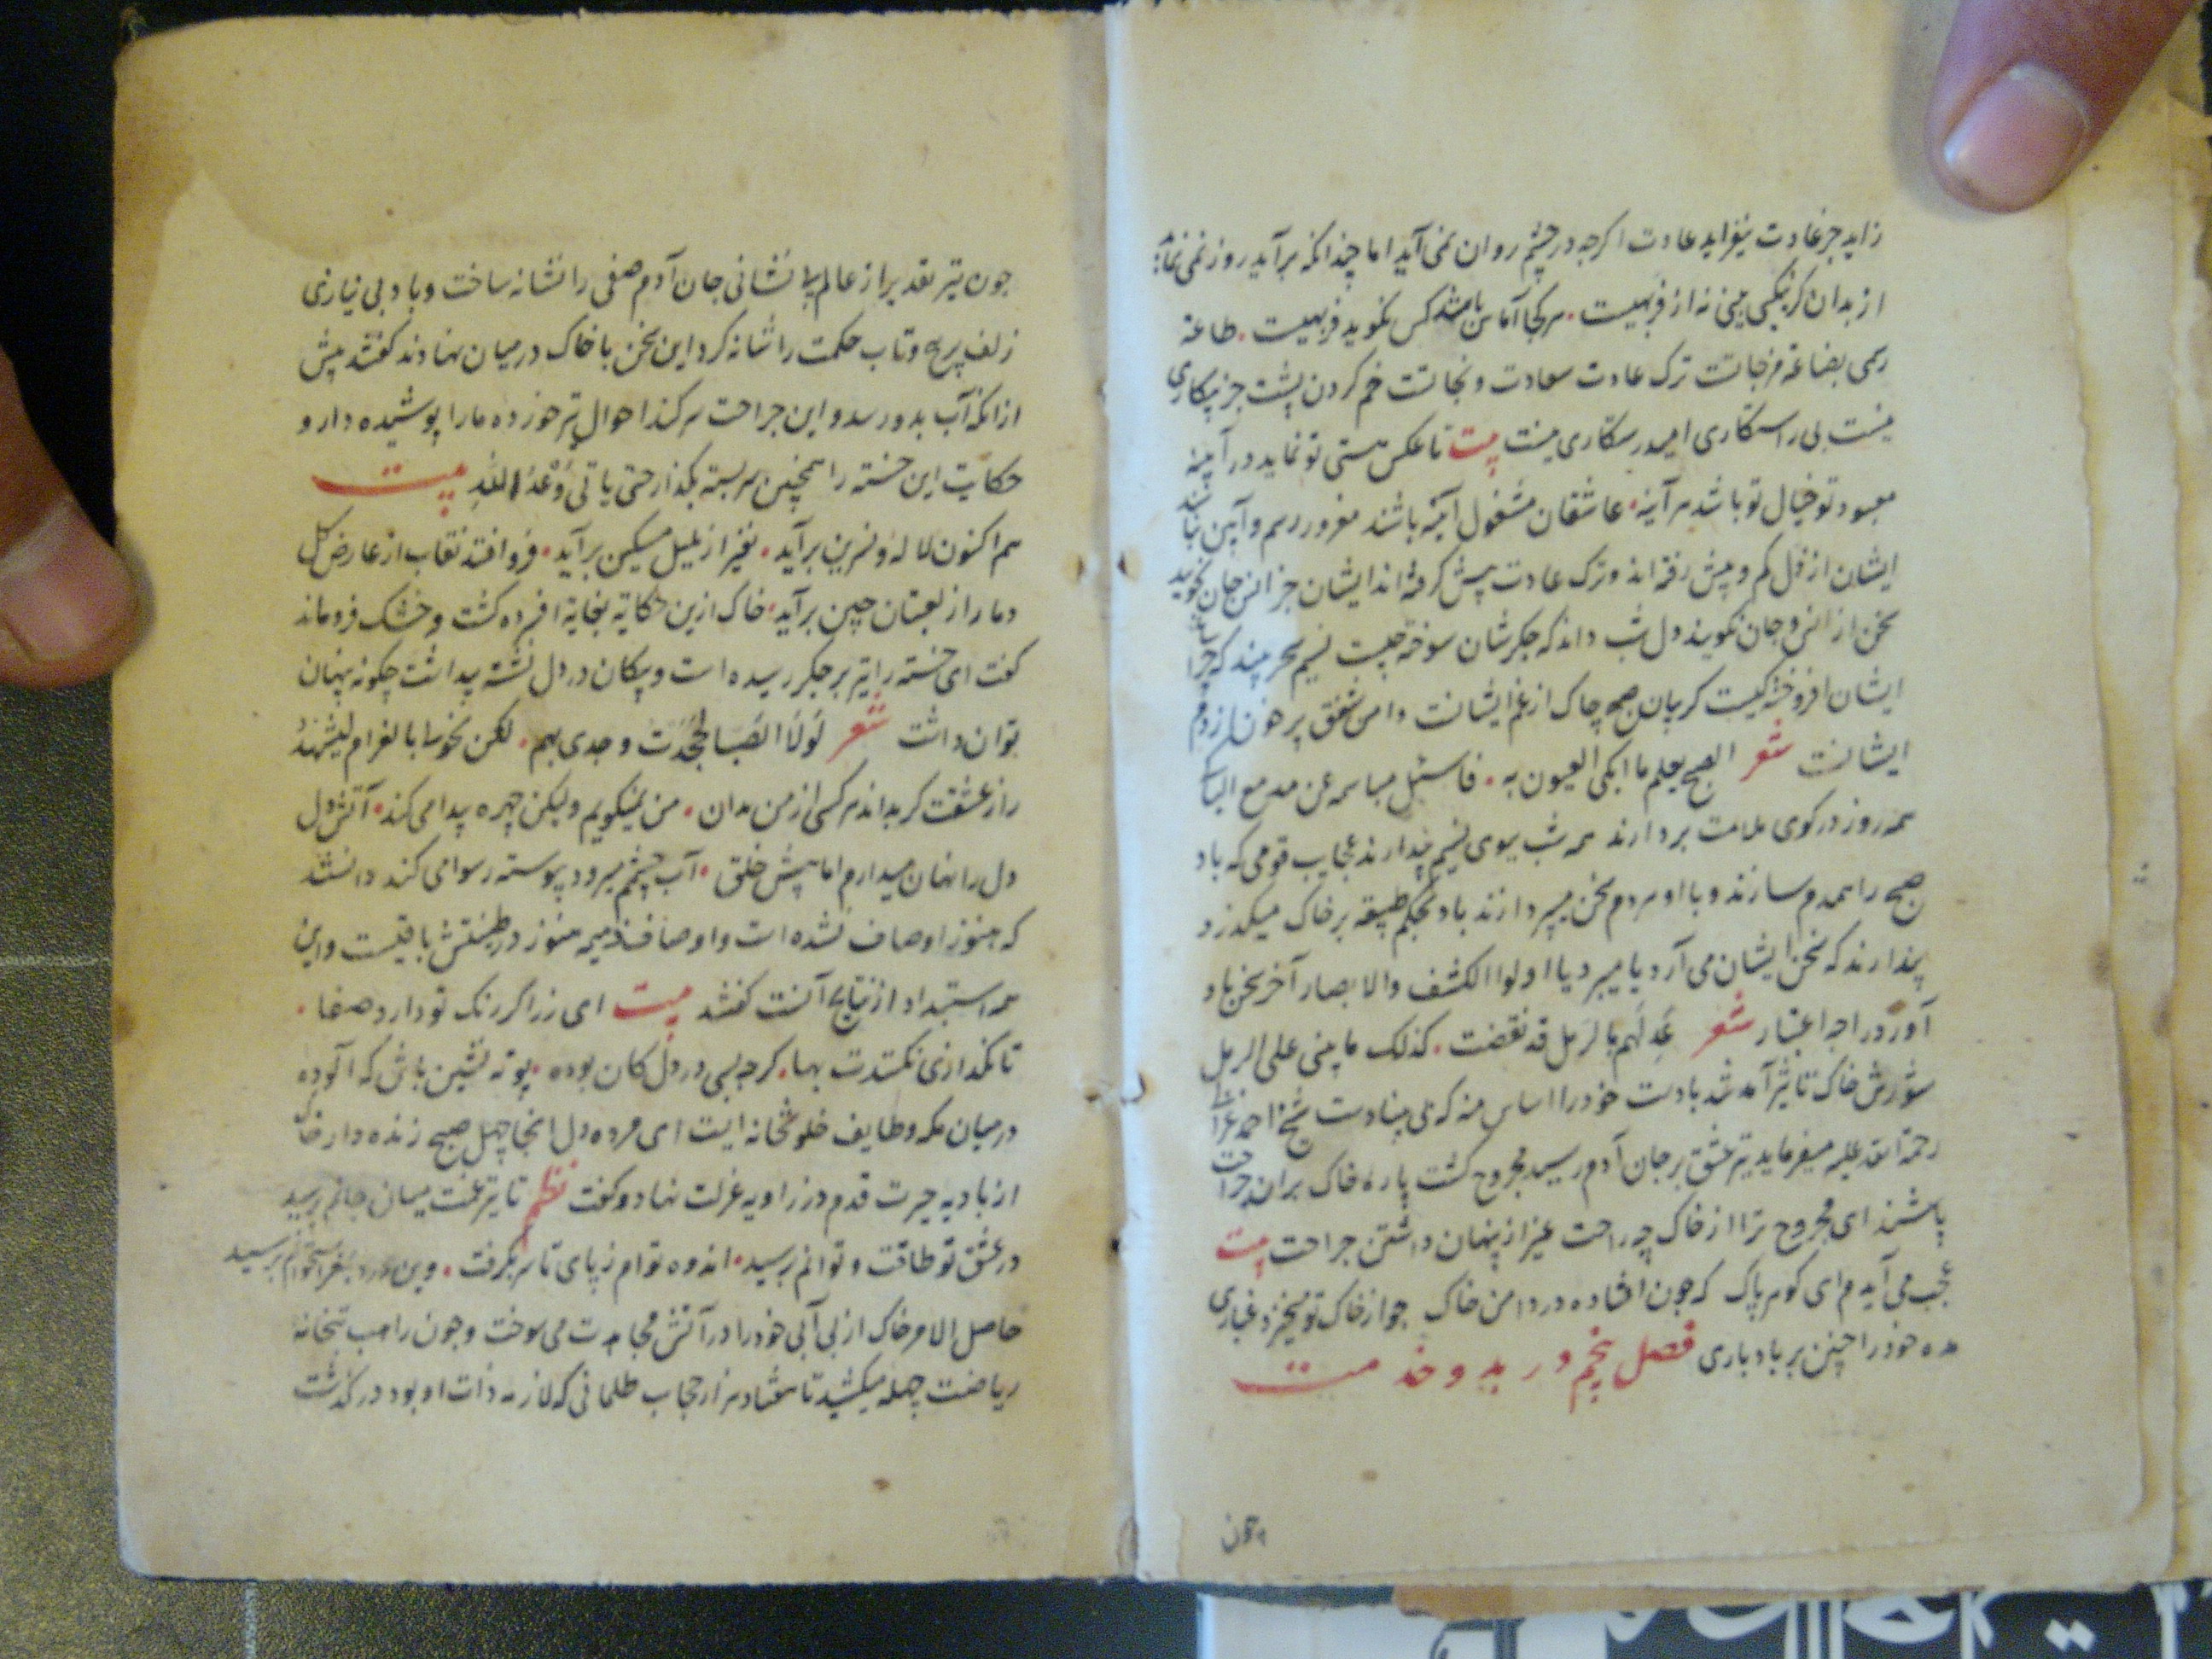 زاید جز عادت نیفزاید عادت اکرچه در چشم روان نمی آید اما چندانکه برآید روز نمی نماید
از بدان کر نیکیی بینی نه از فربهیست . هر کجا آماس باشد کس نکوید فربهیست . طاعة
رسمی بضاعة مزجاتست ترک عادت سعادت و نجاتست خم کردن پشت جز بیکاری
نیست بی راستکاری امید رستکاری نیست بیت تا عکس هستی تو نماید در آینه
معبود تو خیال تو باشد هر آینه . عاشقان مشغول آینه باشند مغرور رسم و آیین نباشند
ایشان از کم و پیش رفته اند و ترک عادت پیش کرفته اند ایشان جز انس جان نجویند
سخن از انس و جان نکویند دل شب داند که جکرشان سوخته چیست نسیم سحر بیند که چراغ
ایشان افروخته کیست کریبان صبح چاک از غم ایشانست دامن شفق پر خون از دم
ایشانست شعر الصبح یعلم ما ابکی العیون به . فاسئل مباسمه عن مدمع الباکی
همه روز در کوی ملامت بردارند همه شب بوی نسیم پندارند عجایب قومی که باد
صبح را همدم سازند و با او هردم سخن میپردازند باد بحکم طبیعة بر خاک میکذرد
پندارند که سخن ایشان می آرد یا میبرد یا اولوا الکشف والابصار آخر سخن باد
آورد را چه اعتبار شعر عد لهم بالرمل قد نقضت . کذلک ما یبنی علی الرمل
شورش خاک تاثیر آمد شد بادست خود را اساس منه که بی بنیادست شیخ احمد غزالی
رحمة الله علیه میفرماید تیر عشق بر جان آدم رسید مجروح کشت پاره خاک بران جراحت
پاشیدند ای مجروح ترا از خاک چه راحت غیر از پنهان داشتن جراحت بیت
عجب می آیدم ای کوهر پاک که چون افتاده در دامن خاک چو از خاک تو میخیزد غباری
مده خود را چنین بر باد باری فصل پنجم در بدو خدمت
چون
چون تیر تقدیر از عالم بی نشانی جان آدم صفی را نشانه ساخت و باد بی نیازی
زلف پر پیچ و تاب حکمت را شانه کرد این سخن با خاک در میان نهادند کفتند پیش
ازانکه آب بدو رسد و این جراحت سر کند احوال تیر خورده ما را پوشیده دار و
حکایت این خسته را همچنین سر بسته بکذار حتی یاتی وعد الله بیت
هم اکنون لاله و نسرین برآید . نفیر از بلبل مسکین برآید . فرو افتد نقاب از عارض کل
دمار از لعبتان چین برآید . خاک ازین حکایة بغایة افسرده کشت و خشک فروماند
کفت ای خسته را تیر بر جکر رسیده است و پیکان در دل نشسته پیداشت چکونه پنهان
توان داشت شعر لولا الصبا لجحدت وجدی بهم . لکن نحوسا بالغرام لیشهد
راز عشقت کر بداند هر کسی از من مدان . من نمیکویم ولیکن چهره پیدا می کند . آتش دل
دل را نهان میدارم اما پیش خلق . آب چشمم میرود پیوسته رسوا می کند دانستند
که هنوز اوصاف نشده است و اوصاف ذمیمه هنوز در طینتش باقیست و این
همه استبداد از نتایج آنست کفتند بیت ای زر اکر رنک تو دارد صفا .
تا نکدازی نکندت بها . کرچه بسی در دل کان بوده . بوته نشین باش که آلوده
در میان مکه و طایف خلوتخانه ایست ای مرده دل انجا چهل صبح زنده دار خاک
از بادیه حیرت قدم در زاویه عزلت نهاد و کفت نظم تا تیر غمت میان جانم برسید
در عشق تو طاقت و توانم برسید . اندوه توام ز پای تا سر بکرفت . وین درد بمغز استخوانم برسید
حاصل الامر خاک از بی آبی خود را در آتش مجاهدت می سوخت و چون راهب بتخانه
ریاضت چله میکشید تا هفتاد هزار حجاب ظلمانی که لازمه ذات او بود در کذشت